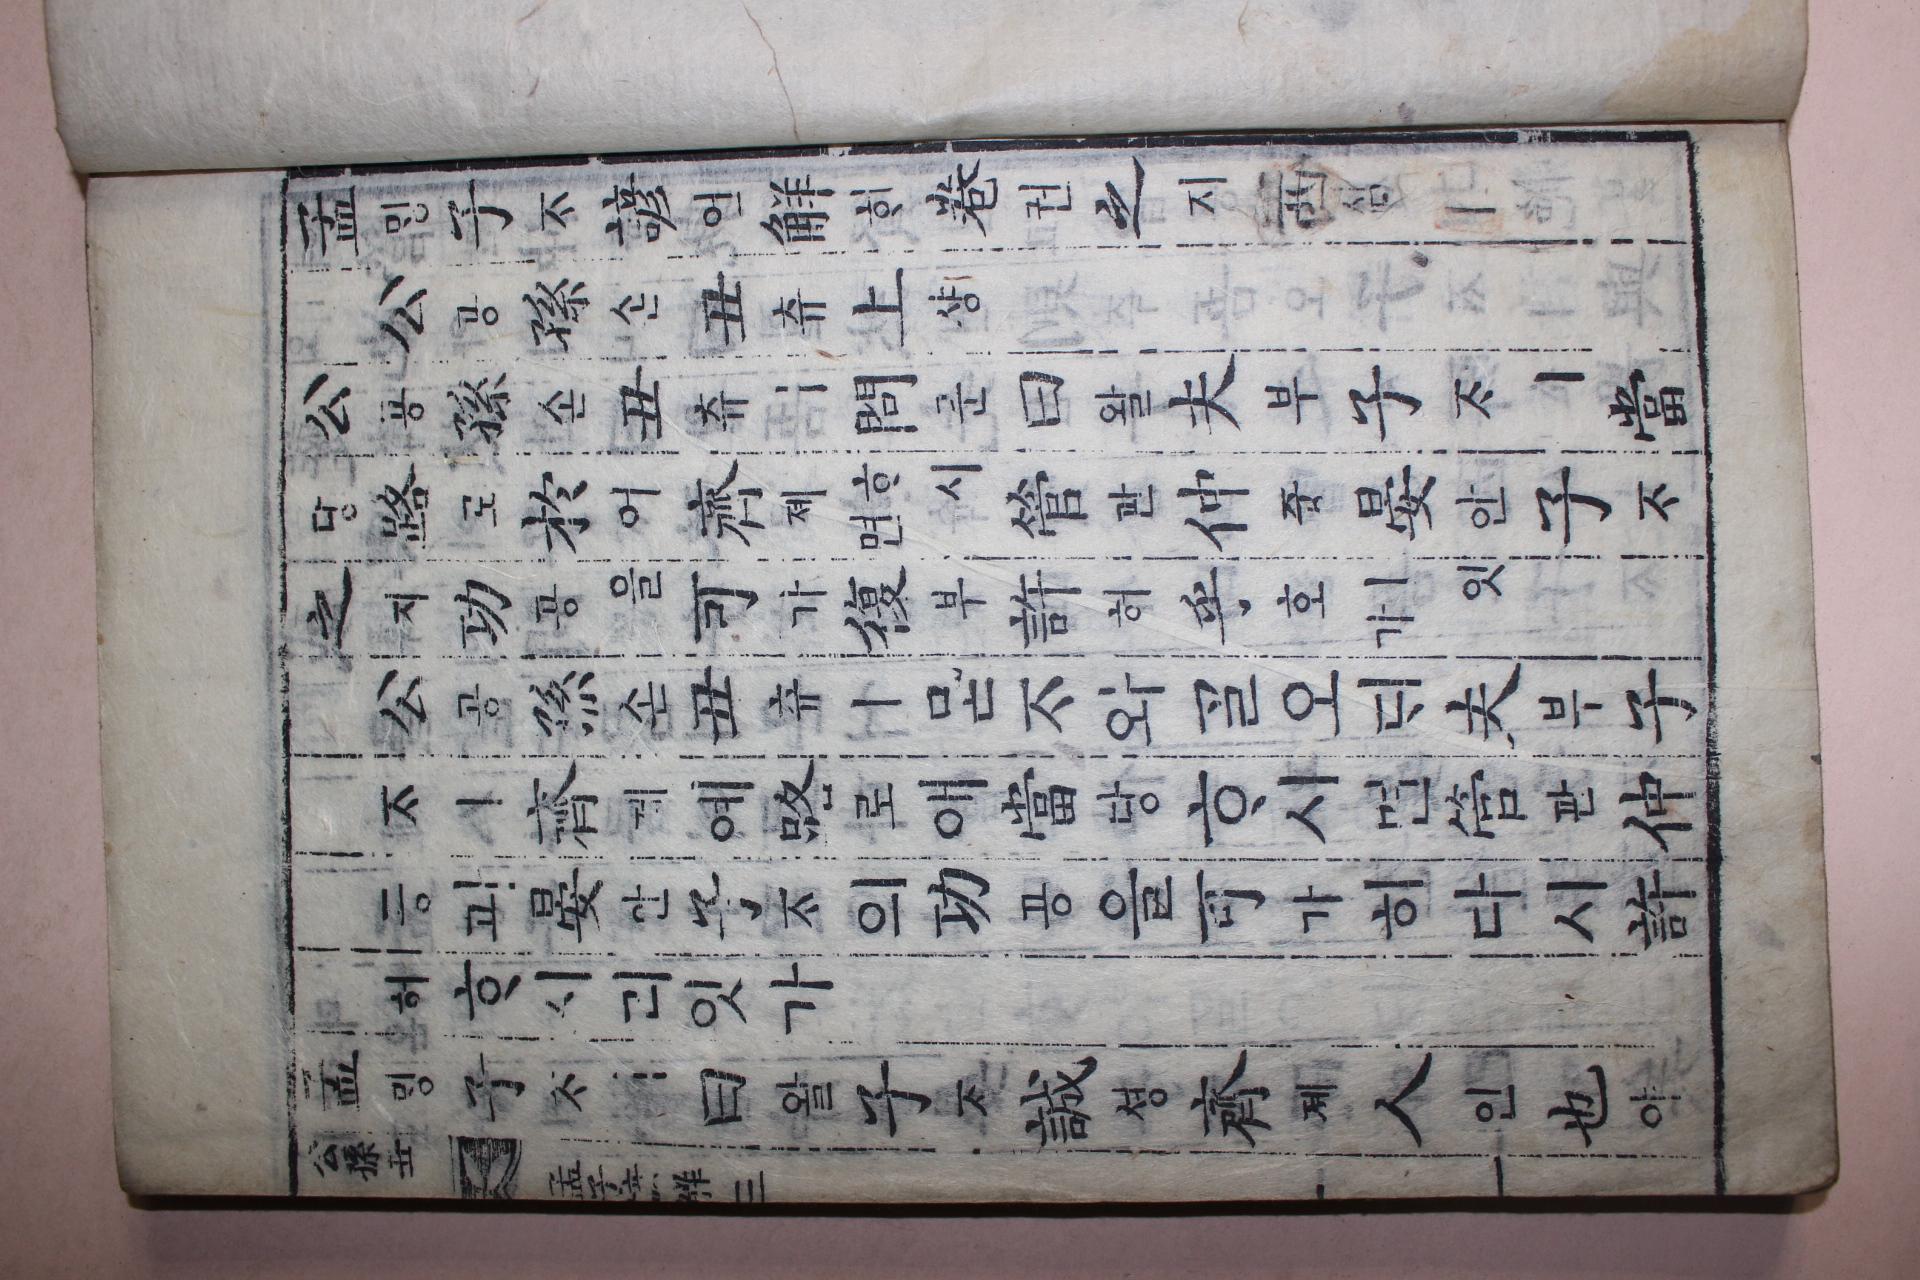 孟밍子ᄌᆞ諺언解ᄒᆡ卷권之지
公공孫손丑츄上샹
公공孫손丑츄ㅣ問문曰왈夫부子ᄌᆞㅣ當
당路로於어齊졔ᄒᆞ시면管관仲즁晏안子ᄌᆞ
之지功공을可가復부許허乎호ㅣ잇가
公공孫손丑츄ㅣ묻ᄌᆞ와ᄀᆞᆯ오ᄃᆡ夫부子
ᄌᆞㅣ齊졔예路로애當당ᄒᆞ시면管관仲
과晏안子ᄌᆞ의功공을可가히다시許
허ᄒᆞ시리잇가
孟밍子ᄌᆞㅣ曰왈子ᄌᆞ誠셩齊졔人인也야
公孫丑 孟子諺解 三 一